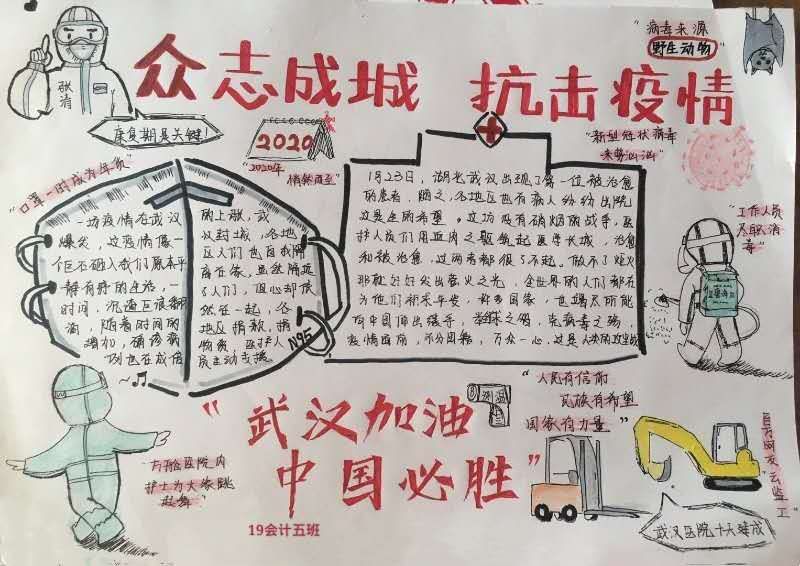 众志成城 抗击疫情
张清
康复期是关键!
2020
"2020年
悄然而至"
"病毒来源
野生动物"
"新型冠状病毒
来势汹汹"
"口罩一时成为年货"
一场疫情在武汉
爆发，这疫情像一
个巨石砸入我们原本平
静有序的生活，一
时间，沉造巨浪翻
涌，随着时间的
增加，确诊病
例也在成倍
的上涨，武
汉封城，各地
区人们也自我隔
离在家，虽然隔离
了人们，但心却依
然在一起，各
地区捐款，捐
物资，医护人
员主动支援
N95
1月23日，湖北武汉出现了第一位被治愈
的患者，随之，各地区也有病人纷纷出院
这是生的希望。这场没有硝烟的战争，医
护人员们用血肉之躯筑起医学长城，治愈
和被治愈，这两者都很了不起。做不了炬火
那就好好发出萤火之光，全世界的人们都在
为他们祈求平安，许多国家，也竭尽所能
向中国伸出援手，举全球之智，克病毒之殇，
疫情面前，不分国籍，万众一心，这是人类的
"工作人员
尽职消
毒"
消毒
"方舱医院内
护士为大家跳
起舞"
测温
"人民有信仰
民族有希望
国家有力量"
"武汉加油
中国必胜"
19会计五班
百万网友"云监工"
武汉医院十天建成